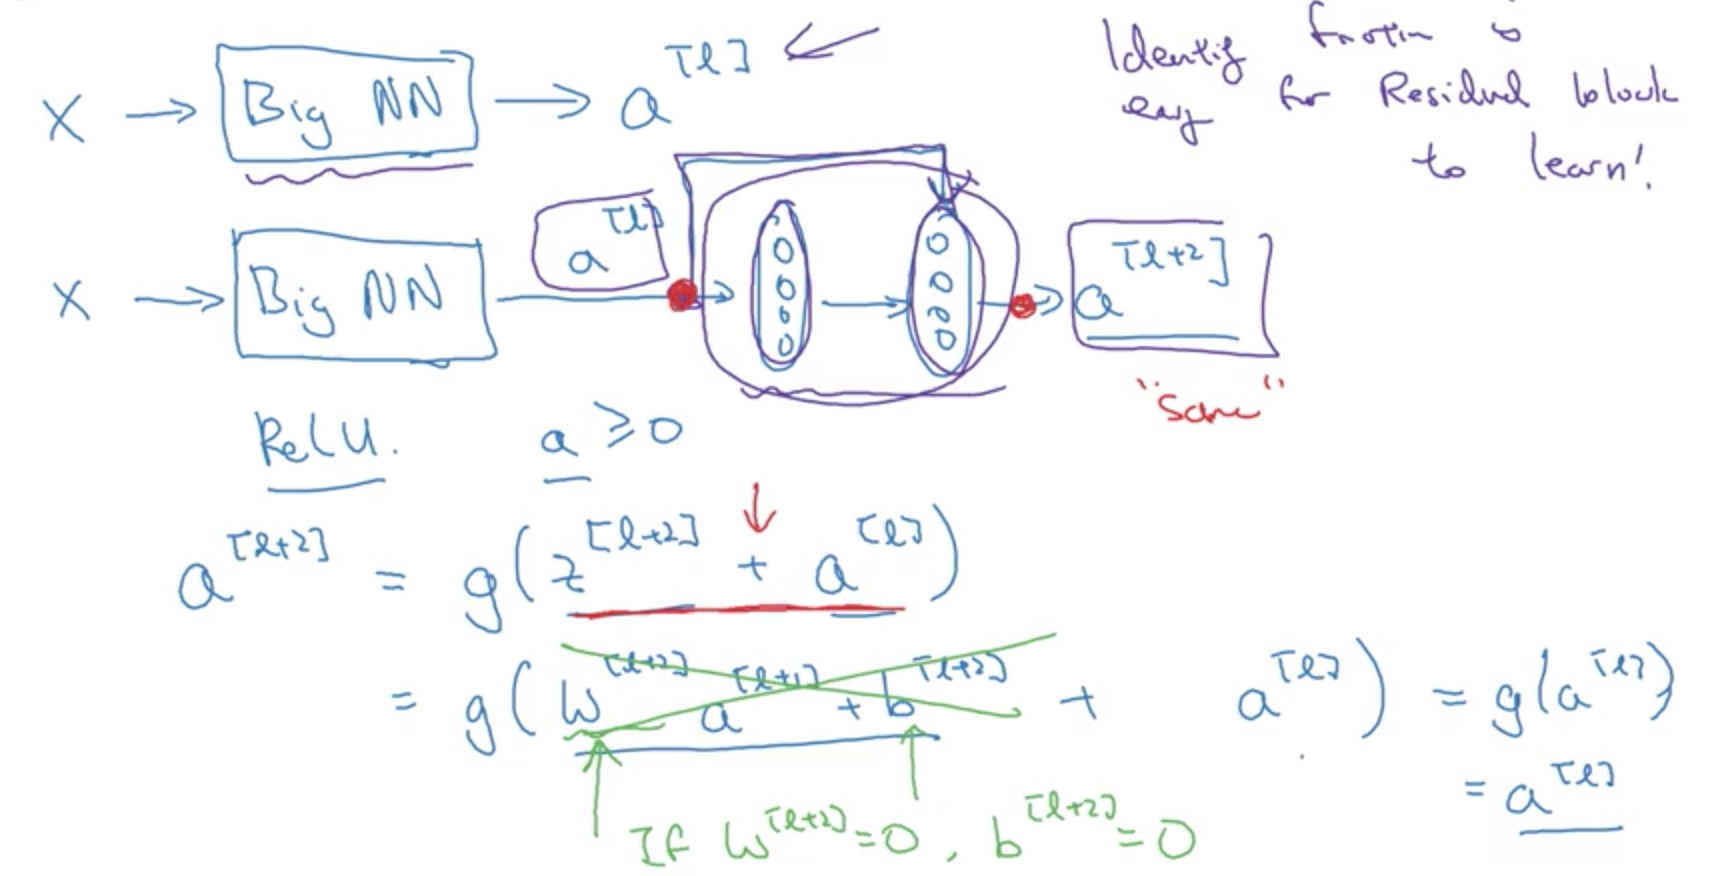 X → Big NN → a^[l]
Identity function is
easy for Residual block
to learn!
X → Big NN → a^[l] → → a^[l+2]
"Same"
ReLU. a ≥ 0
a^[l+2] = g(z^[l+2] + a^[l])
= g(W^[l+2] a^[l+1] + b^[l+2] + a^[l]) = g(a^[l])
= a^[l]
If W^[l+2] = 0, b^[l+2] = 0